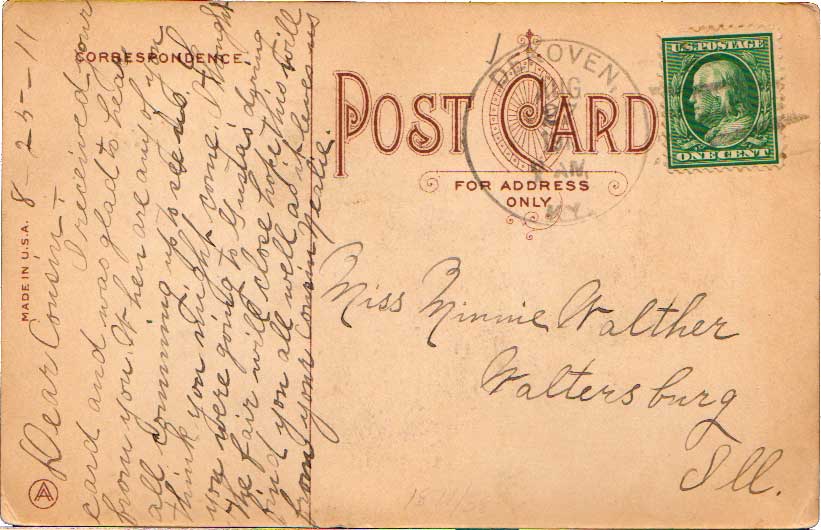 CORRESPONDENCE.
POST CARD
FOR ADDRESS
ONLY
MADE IN U.S.A.
DEKOVEN,
AUG
AM
KY.
U.S. POSTAGE
ONE CENT
8-25-11
Dear Cousin:-
I received your
card and was glad to hear
from you. When are any of you
all comming up to see us. I
think you might come. I thought
you were going to Gusta's during
the fair will close hope this will
find you all well as it leaves us
from your Cousin
Miss Minnie Walther
Waltersburg
Ill.